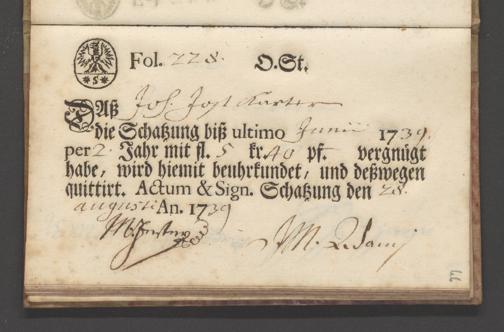 *5*
Fol. 228. O.St.
Daß Joh. Jost
die Schatzung biß ultimo Junii 1739.
per 2. Jahr mit fl. 5 kr. 40 pf. vergnügt
habe, wird hiemit beuhrkundet, und deßwegen
quittirt. Actum & Sign. Schatzung den 28.
augusti An. 1739